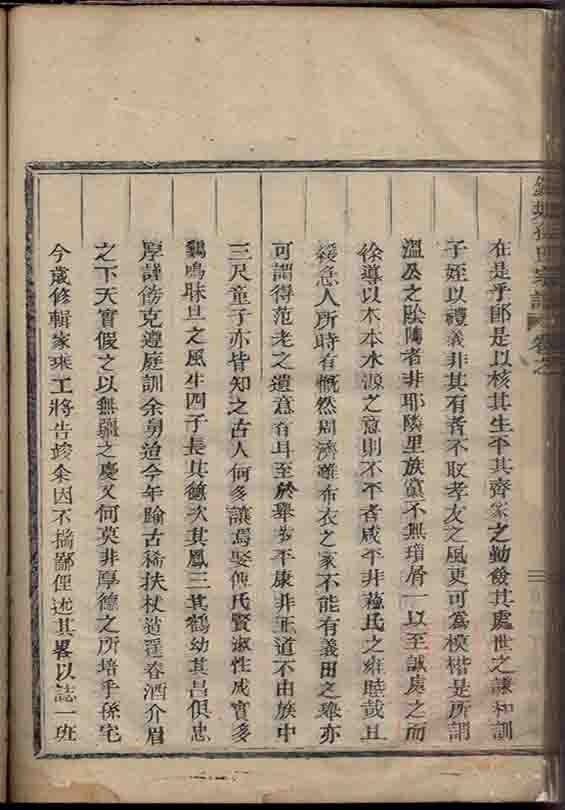 在是乎卽是以核其生平其齊家之勤儉其處世之謙和訓
子姪以禮義非其有者不取孝友之風更可爲模楷是所謂
溫及之陰隲者非耶隣里族黨不無瑣屑一以至誠處之而
徐導以木本水源之意則不平者咸平非蓺氏之雍睦哉且
緩急人所時有慨然周濟雖布衣之家不能有義田之舉亦
可謂得范老之遺意者耳至於舉步平康非正道不由族中
三尺童子亦皆知之古人何多讓焉娶傅氏賢淑性成實多
鷄鳴昧旦之風生四子長其德次其鳳三其鶴幼其昌俱忠
厚謹傍克遵庭訓余舅治今年踰古稀扶杖逍遙春酒介眉
之下天實假之以無疆之慶又何莫非厚德之所培乎孫宅
今歲修輯家乘工將告竣余因不揣鄙俚述其畧以誌一班
氏宗譜
卷之